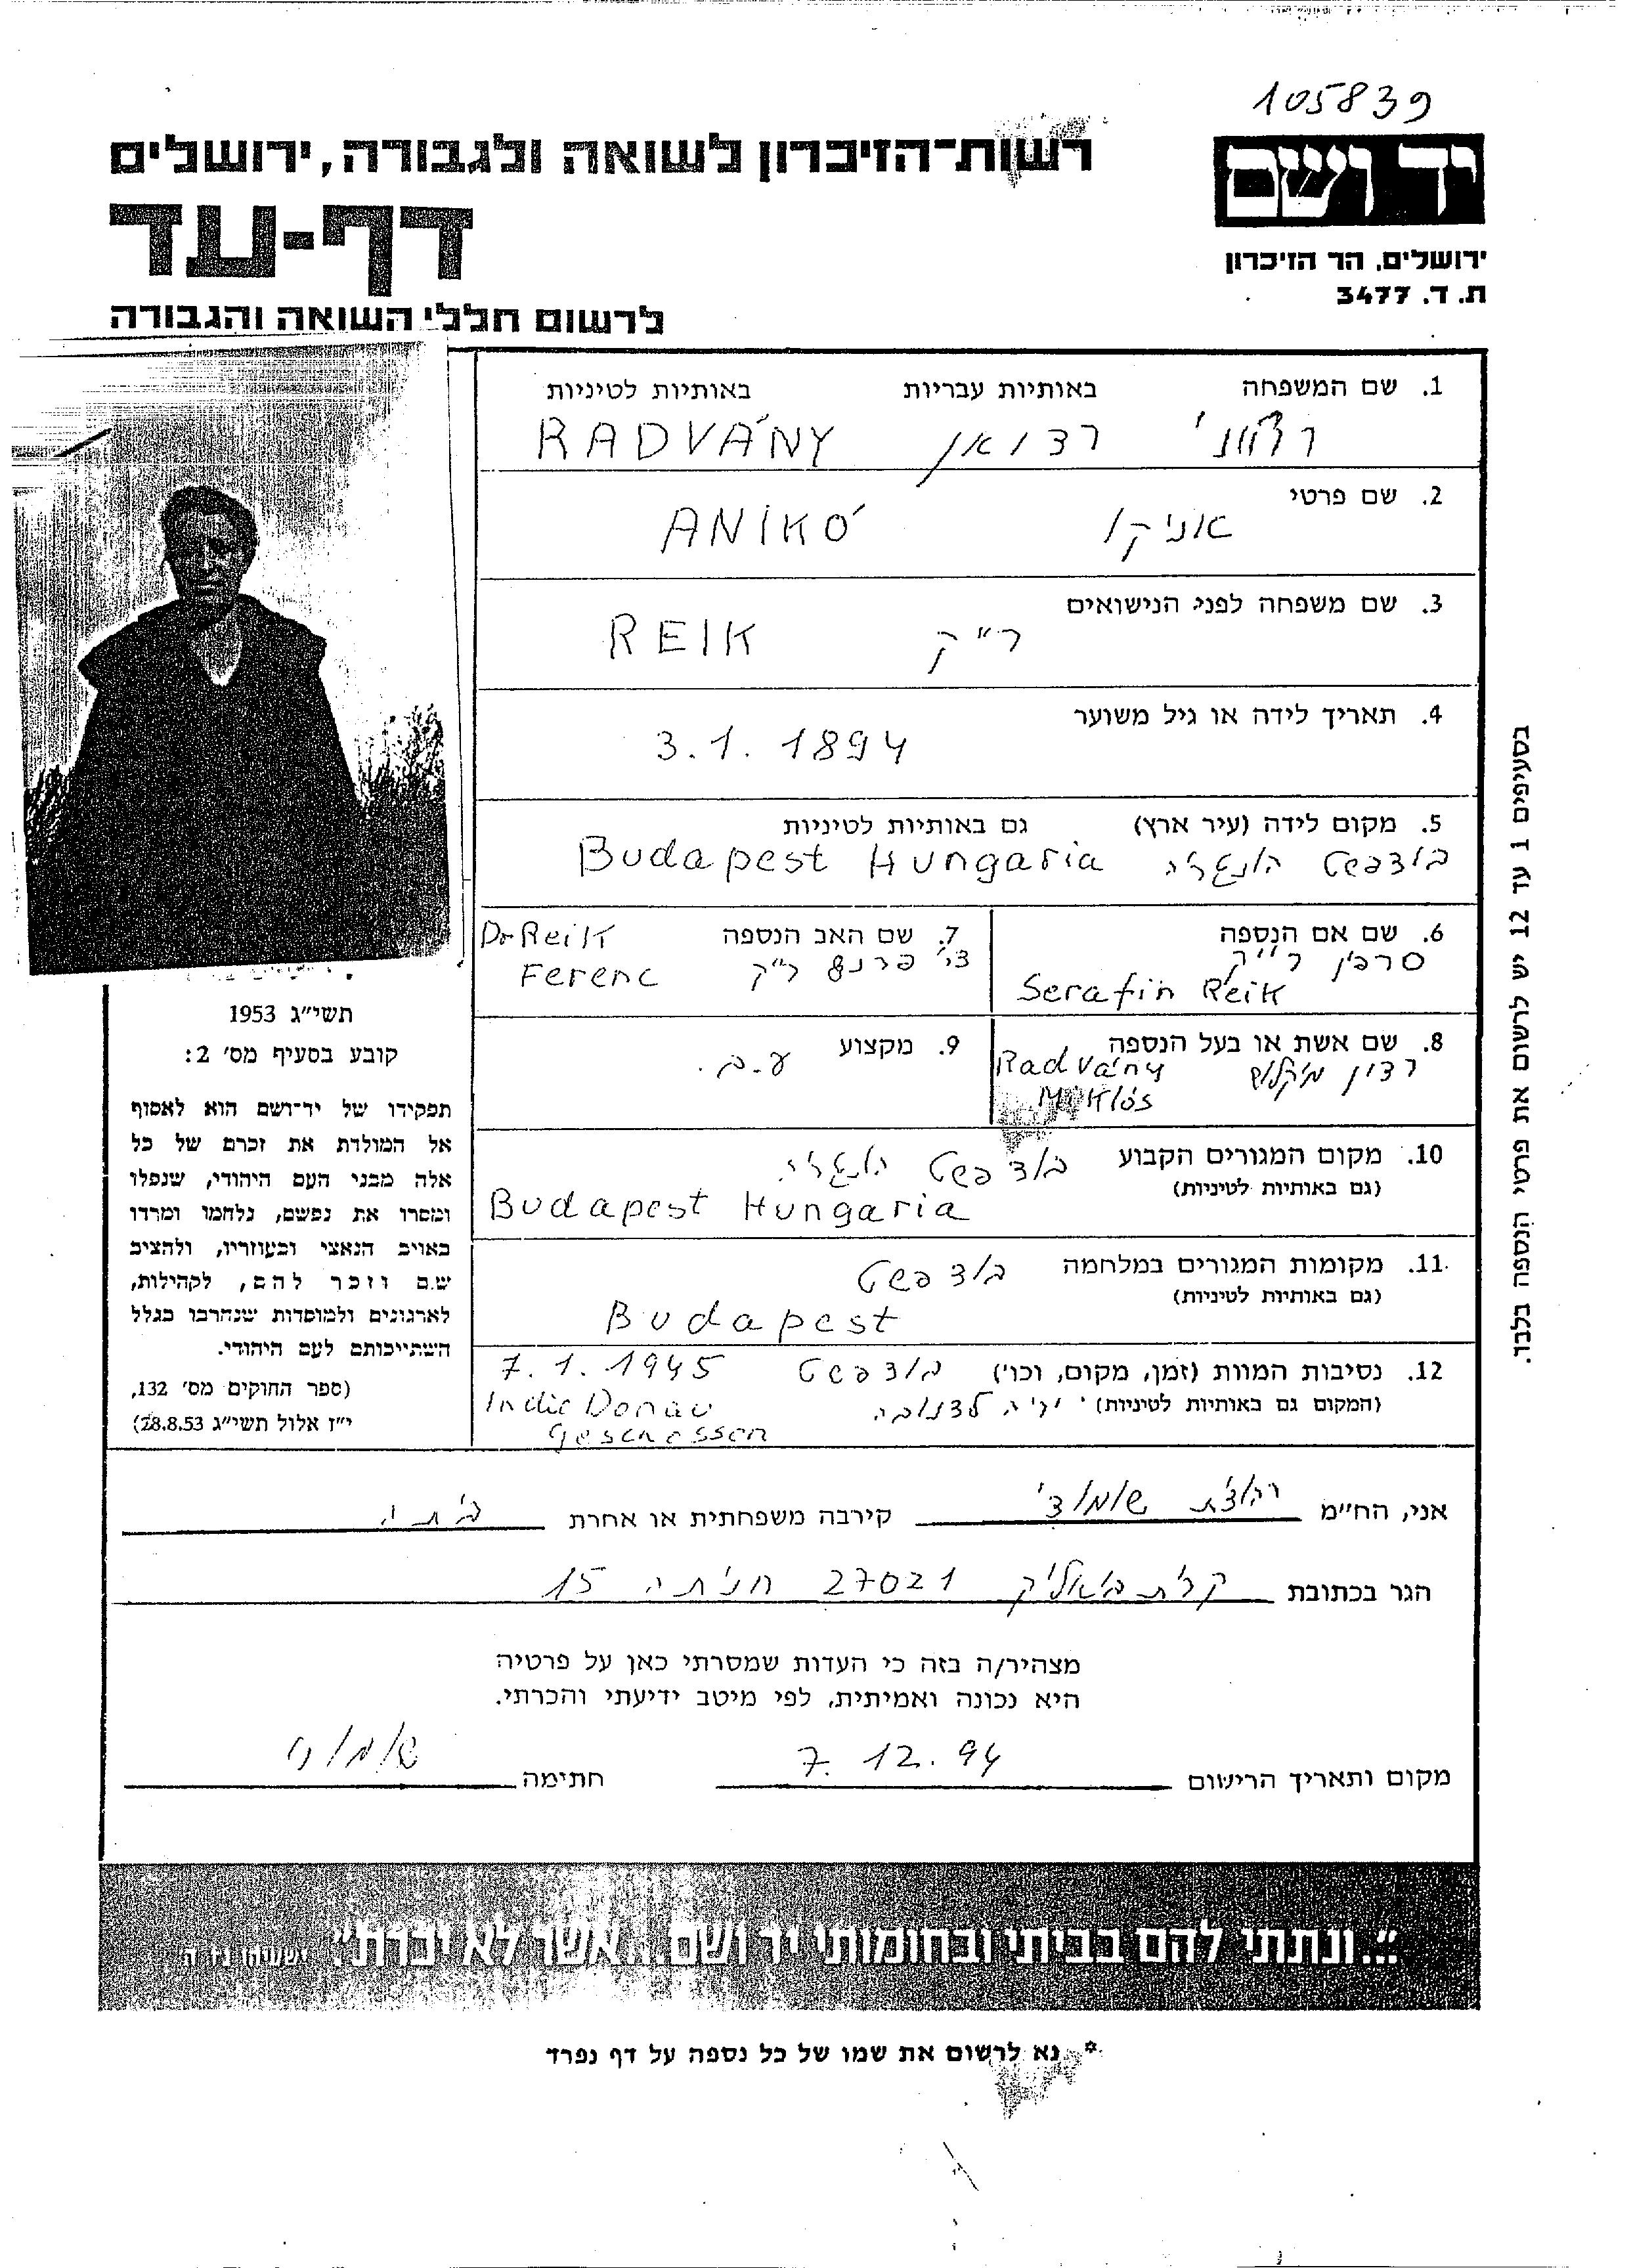 105839
יד ושם
רשות-הזיכרון לשואה ולגבורה, ירושלים
דף-עד
ירושלים, הר הזיכרון
ת. ד. 3477
לרשום חללי השואה והגבורה
1. שם המשפחה באותיות עבריות באותיות לטיניות
רדואן RADVÁNY
2. שם פרטי
אניקו ANIKÓ
3. שם משפחה לפני הנישואים
רייק REIK
4. תאריך לידה או גיל משוער
3.1.1894
5. מקום לידה (עיר ארץ) גם באותיות לטיניות
בודפשט הונגריה Budapest Hungaria
6. שם אם הנספה
סרפין רייק
Serafin Reik
7. שם האב הנספה Dr Reik
דר' פרנץ רייק Ferenc
8. שם אשת או בעל הנספה
רדון מיקלוש Radvány
Miklós
9. מקצוע
ע.ב.
10. מקום המגורים הקבוע בודפשט הונגריה
(גם באותיות לטיניות)
Budapest Hungaria
11. מקומות המגורים במלחמה בודפשט
(גם באותיות לטיניות)
Budapest
12. נסיבות המוות (זמן, מקום, וכו') בודפשט 7.1.1945
(המקום גם באותיות לטיניות) לדנובה In die Donau
geschossen
תשי״ג 1953
קובע בסעיף מס׳ 2:
תפקידו של יד-ושם הוא לאסוף
אל המולדת את זכרם של כל
אלה מבני העם היהודי, שנפלו
ומסרו את נפשם, נלחמו ומרדו
באויב הנאצי ובעוזריו, ולהציב
שם וזכר להם, לקהילות,
לארגונים ולמוסדות שנחרבו בגלל
השתייכותם לעם היהודי.
(ספר החוקים מס׳ 132,
י״ז אלול תשי״ג 28.8.53)
בסעיפים 1 עד 12 יש לרשום את פרטי הנספה בלבד.
אני, הח״מ יהודית שמודי קירבה משפחתית או אחרת בתה
הגר בכתובת קרית ביאליק 27021 חניתה 15
מצהיר/ה בזה כי העדות שמסרתי כאן על פרטיה
היא נכונה ואמיתית, לפי מיטב ידיעתי והכרתי.
מקום ותאריך הרישום 7.12.94 חתימה
״...ונתתי להם בביתי ובחומותי יד ושם...אשר לא יכרת״ ישעיהו נ״ו ה׳
* נא לרשום את שמו של כל נספה על דף נפרד